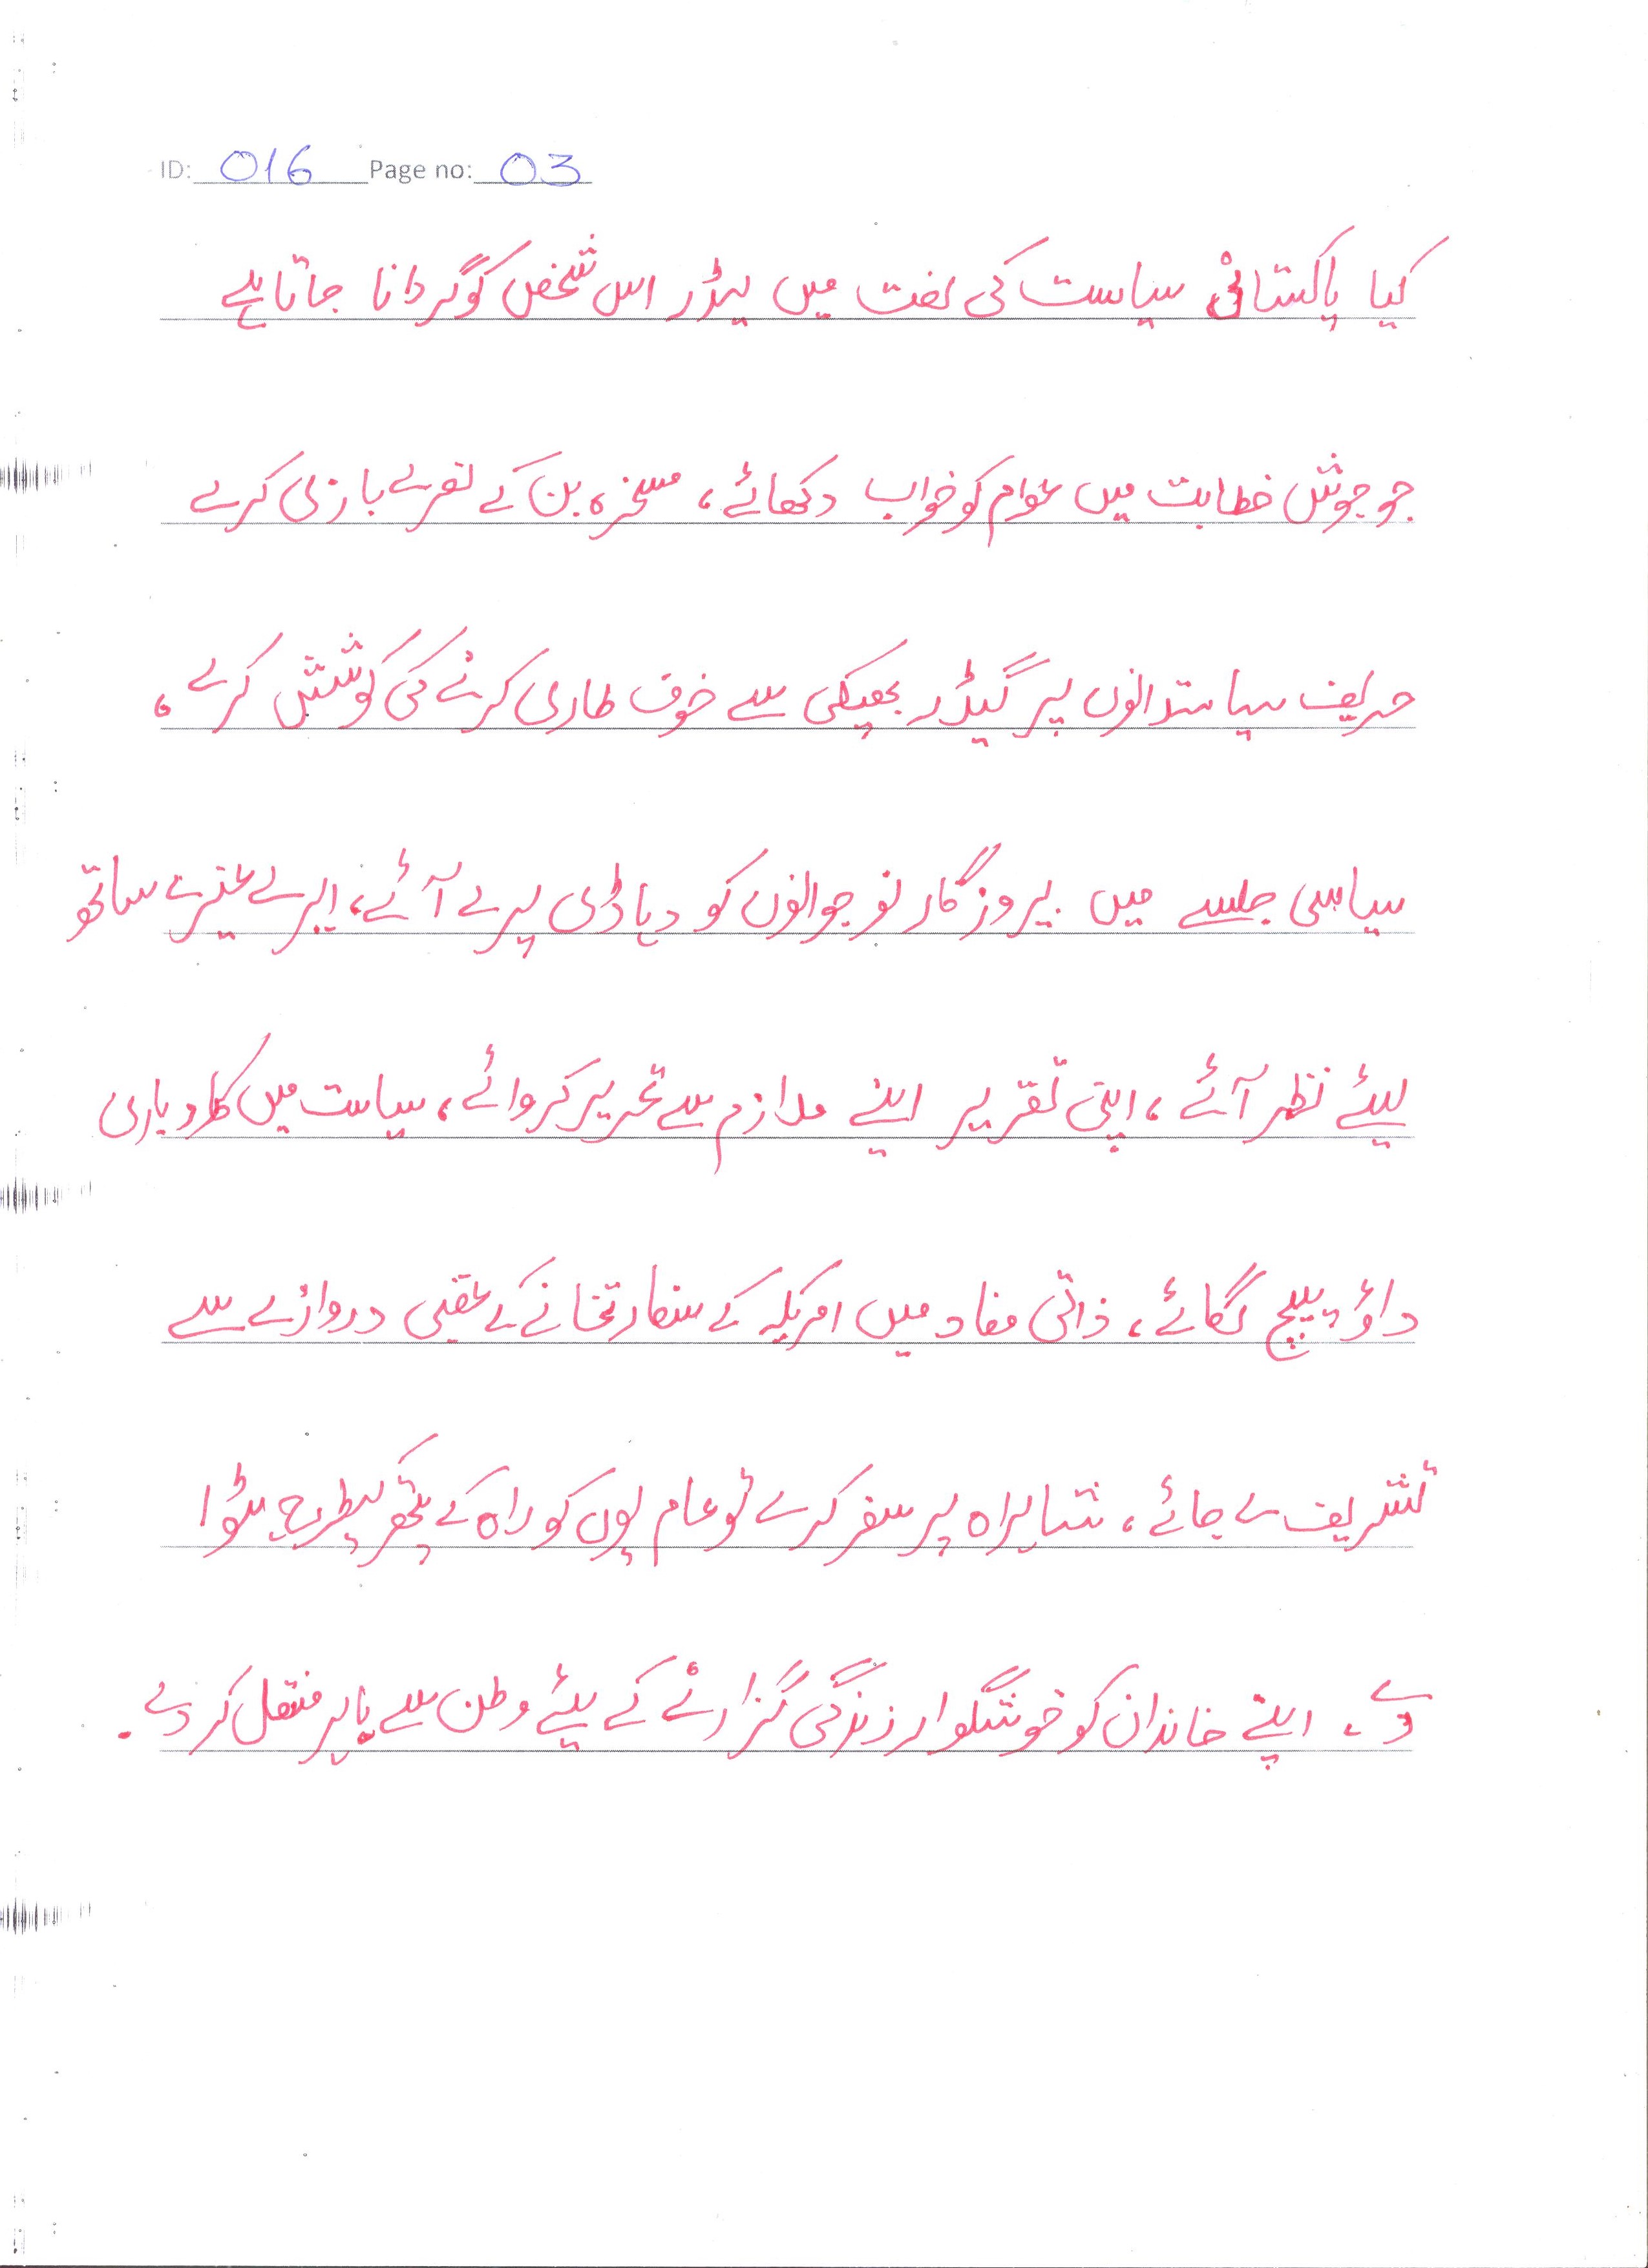 ID: 016 Page no: 03
کیا پاکستانی سیاست کی لغت میں لیڈر اس شخص کو گردانا جاتا ہے
جو جوش خطابت میں عوام کو خواب دکھائے، مسخرہ بن کے نعرے بازی کرے
حریف سیاستدانوں پر گیڈر بھبکی سے خوف طاری کرنے کی کوشش کرے،
سیاسی جلسے میں بیروزگار نوجوانوں کو دہاڑی پر لے آئے، ایرے غیرے ساتھ
لیئے نظر آئے، اپنی تقریر اپنے ملازم سے تحریر کروائے، سیاست میں کاروباری
داؤ پیچ لگائے، ذاتی مفاد میں امریکہ کے سفارتخانے کے عقبی دروازے سے
تشریف لے جائے، شاہراہ پر سفر کرے تو عام لوں کو راہ کے پتھر کیطرح ہٹوا
دے، اپنے خاندان کو خوشگوار زندگی گزارنے کے لیئے وطن سے باہر منتقل کر دے۔